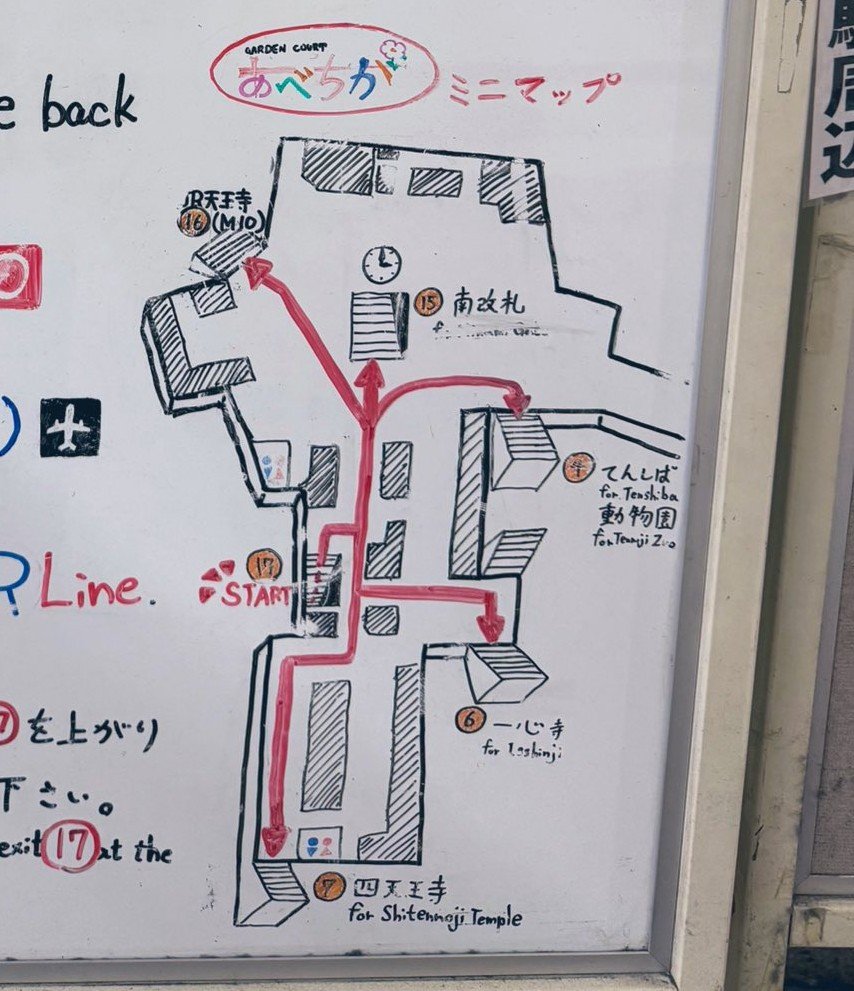 GARDEN COURT
あべちか ミニマップ
back
JR天王寺
16 (M10)
15 南改札
てんしば
for Tenshiba
動物園
for Tennji Zoo
17
START
Line.
6 一心寺
for Isshinji
を上がり
下さい。
exit 17 at the
7 四天王寺
for Shitennoji Temple
駅周辺